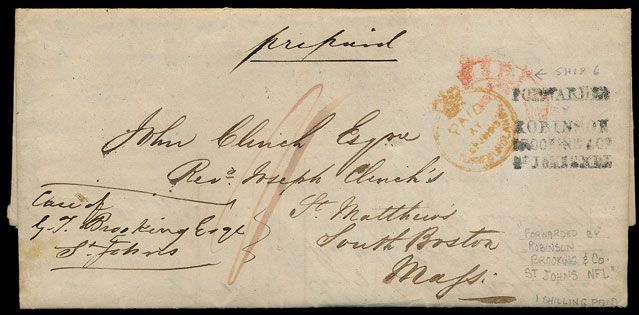 prepaid
← SHIP 6
FORWARDED
BY
ROBINSON
BROOKING & CO
ST JOHNS NFL
PAID
AT
John Clinch Esqre
Revd Joseph Clinch's
St Matthew's
South Boston
Mass.
Care of
G. T. Brooking Esqr
St Johns
"FORWARDED BY
ROBINSON
BROOKING & CO.
ST JOHNS NFL"
1 SHILLING PAID